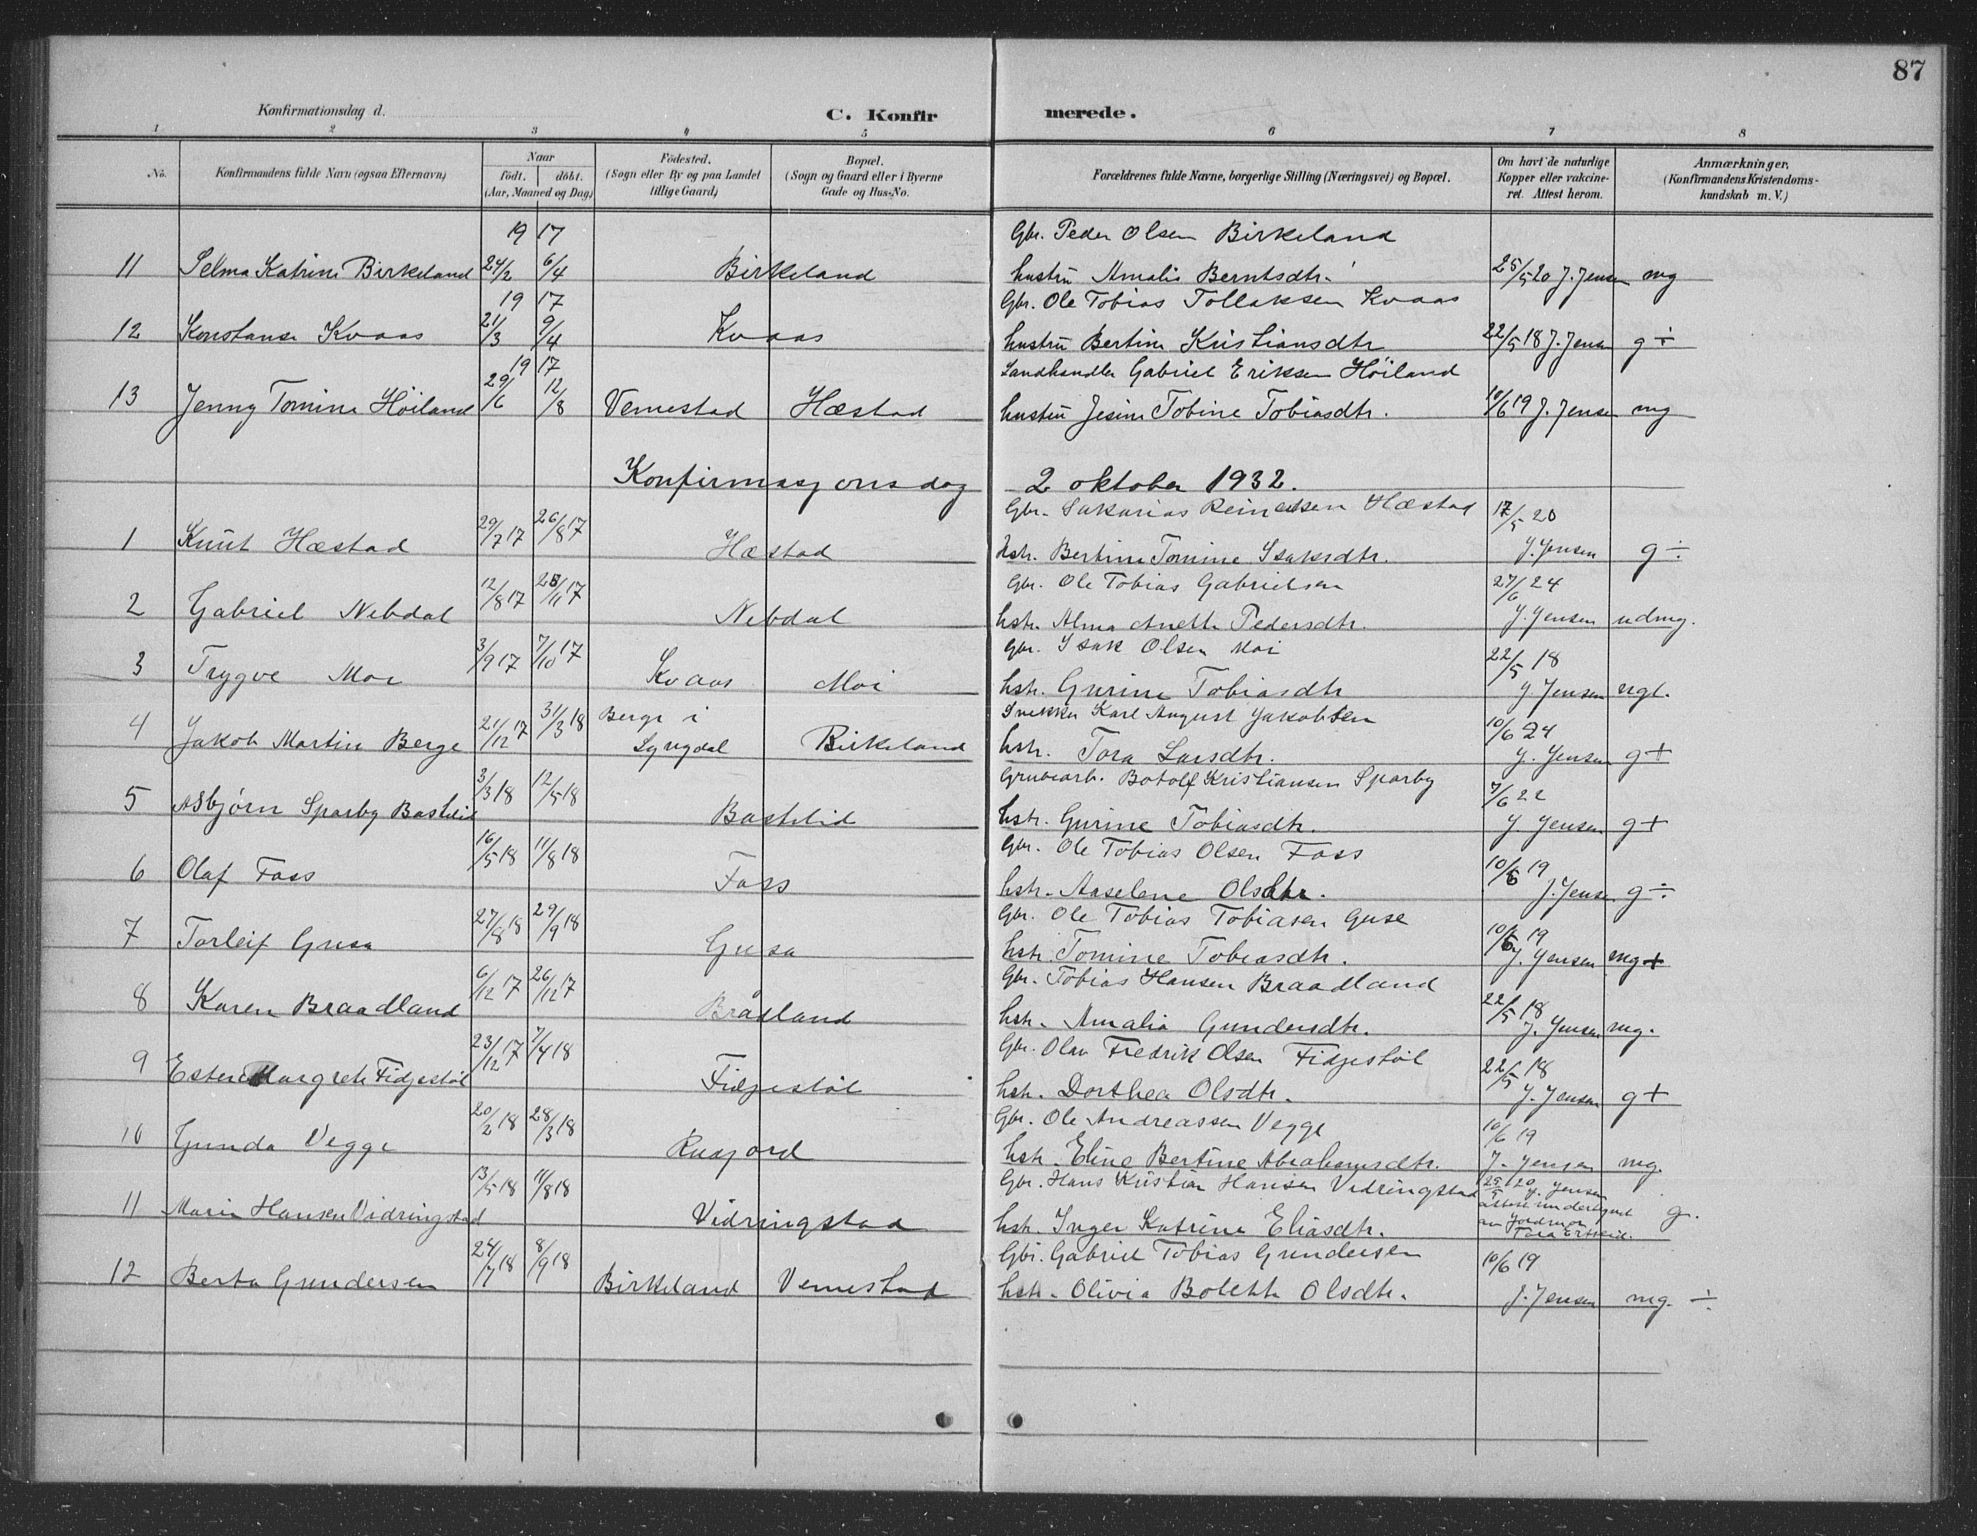 87
Konfirmationsdag d. C. Konfirmerede.
1 2 3 4 5 6 7 8
No. Konfirmandens fulde Navn (ogsaa Efternavn) Naar født. døbt. (Aar, Maaned og Dag) Fødested. (Sogn eller By og paa Landet tillige Gaard.) Bopæl. (Sogn og Gaard eller i Byerne Gade og Hus-No. Forældrenes fulde Navne, borgerlige Stilling (Næringsvei) og Bopæl. Om havt de naturlige Kopper eller vakcineret. Attest herom. Anmærkninger. (Konfirmandens Kristendomskundskab m. V.)
19 17 Gbr. Peder Olsen Birkeland
11 Selma Katrine Birkeland 24/2 6/4 Birkeland hustru Amalie Berntsdtr. 25/5 20 J. Jensen mg
19 17 Gbr. Ole Tobias Tollaksen Kvaas
12 Konstanse Kvaas 21/3 9/4 Kvaas hustru Bertine Kristiansdtr 22/5 18 J. Jensen g ÷
19 17 Landhandler Gabriel Eriksen Höiland
13 Jenny Tomine Höiland 29/6 12/8 Vemestad Hæstad hustru Jesine Tobine Tobiasdtr. 10/6 19 J. Jensen mg
Konfirmasjonsdag 2 oktober 1932.
Gbr. Sakarias Reinertsen Hæstad 17/5 20
1 Knut Hæstad 29/7 17 26/8 17 Hæstad hstr. Bertine Tomine Isaksdtr. J. Jensen g ÷
Gbr. Ole Tobias Gabrielsen 27/6 24
2 Gabriel Nebdal 12/8 17 25/11 17 Nebdal hstr. Alma Anette Pedersdtr. J. Jensen udmg.
Gbr. Isak Olsen Moi 22/5 18
3 Trygve Moi 3/9 17 7/10 17 Kvaas Moi hstr. Gurine Tobiasdtr J. Jensen ngt.
Snekker Karl August Jakobsen 10/6 24
4 Jakob Martin Berge 21/12 17 31/3 18 Berge i Lyngdal Birkeland hstr. Tora Larsdtr. J. Jensen g +
Grubearb. Botolf Kristiansen Sparby 7/6 22
5 Asbjørn Sparby Bastelid 3/3 18 12/5 18 Bastelid hstr. Gurine Tobiasdtr. J. Jensen g +
Gbr. Ole Tobias Olsen Foss 10/6 19
6 Olaf Foss 16/5 18 11/8 18 Foss hstr. Aaselene Olsdtr. J. Jensen g ÷
Gbr. Ole Tobias Tobiasen Guse 10/6 19
7 Torleif Gusa 27/8 18 29/9 18 Gusa hstr. Tomine Tobiasdtr. J. Jensen mg +
Gbr. Tobias Hansen Braadland 22/5 18
8 Karen Braadland 6/12 17 26/12 17 Brådland hstr. Amalia Gundersdtr. J. Jensen mg.
Gbr. Olav Fredrik Olsen Fidjestöl 22/5 18
9 Ester Margrete Fidjestöl 23/12 17 7/4 18 Fidjestöl hstr. Dorthea Olsdtr. J. Jensen g +
Gbr. Ole Andreassen Vegge 10/6 19
10 Gunda Vegge 20/2 18 28/3 18 Rusjord hstr. Eline Bertine Abrahamsdtr. J. Jensen mg.
Gbr. Hans Kristian Hansen Vedringstad 25/5 20 J. Jensen
11 Marie Hansen Vidringstad 13/5 18 11/8 18 Vidringstad hstr. Inger Katrine Eliasdtr. attest undertegnet av Jordmor Tora g.
Gbr. Gabriel Tobias Gundersen 10/6 19
12 Berta Gundersen 24/7 18 8/9 18 Birkeland Vemestad hstr. Olivia Bolette Olsdtr. J. Jensen mg. ÷